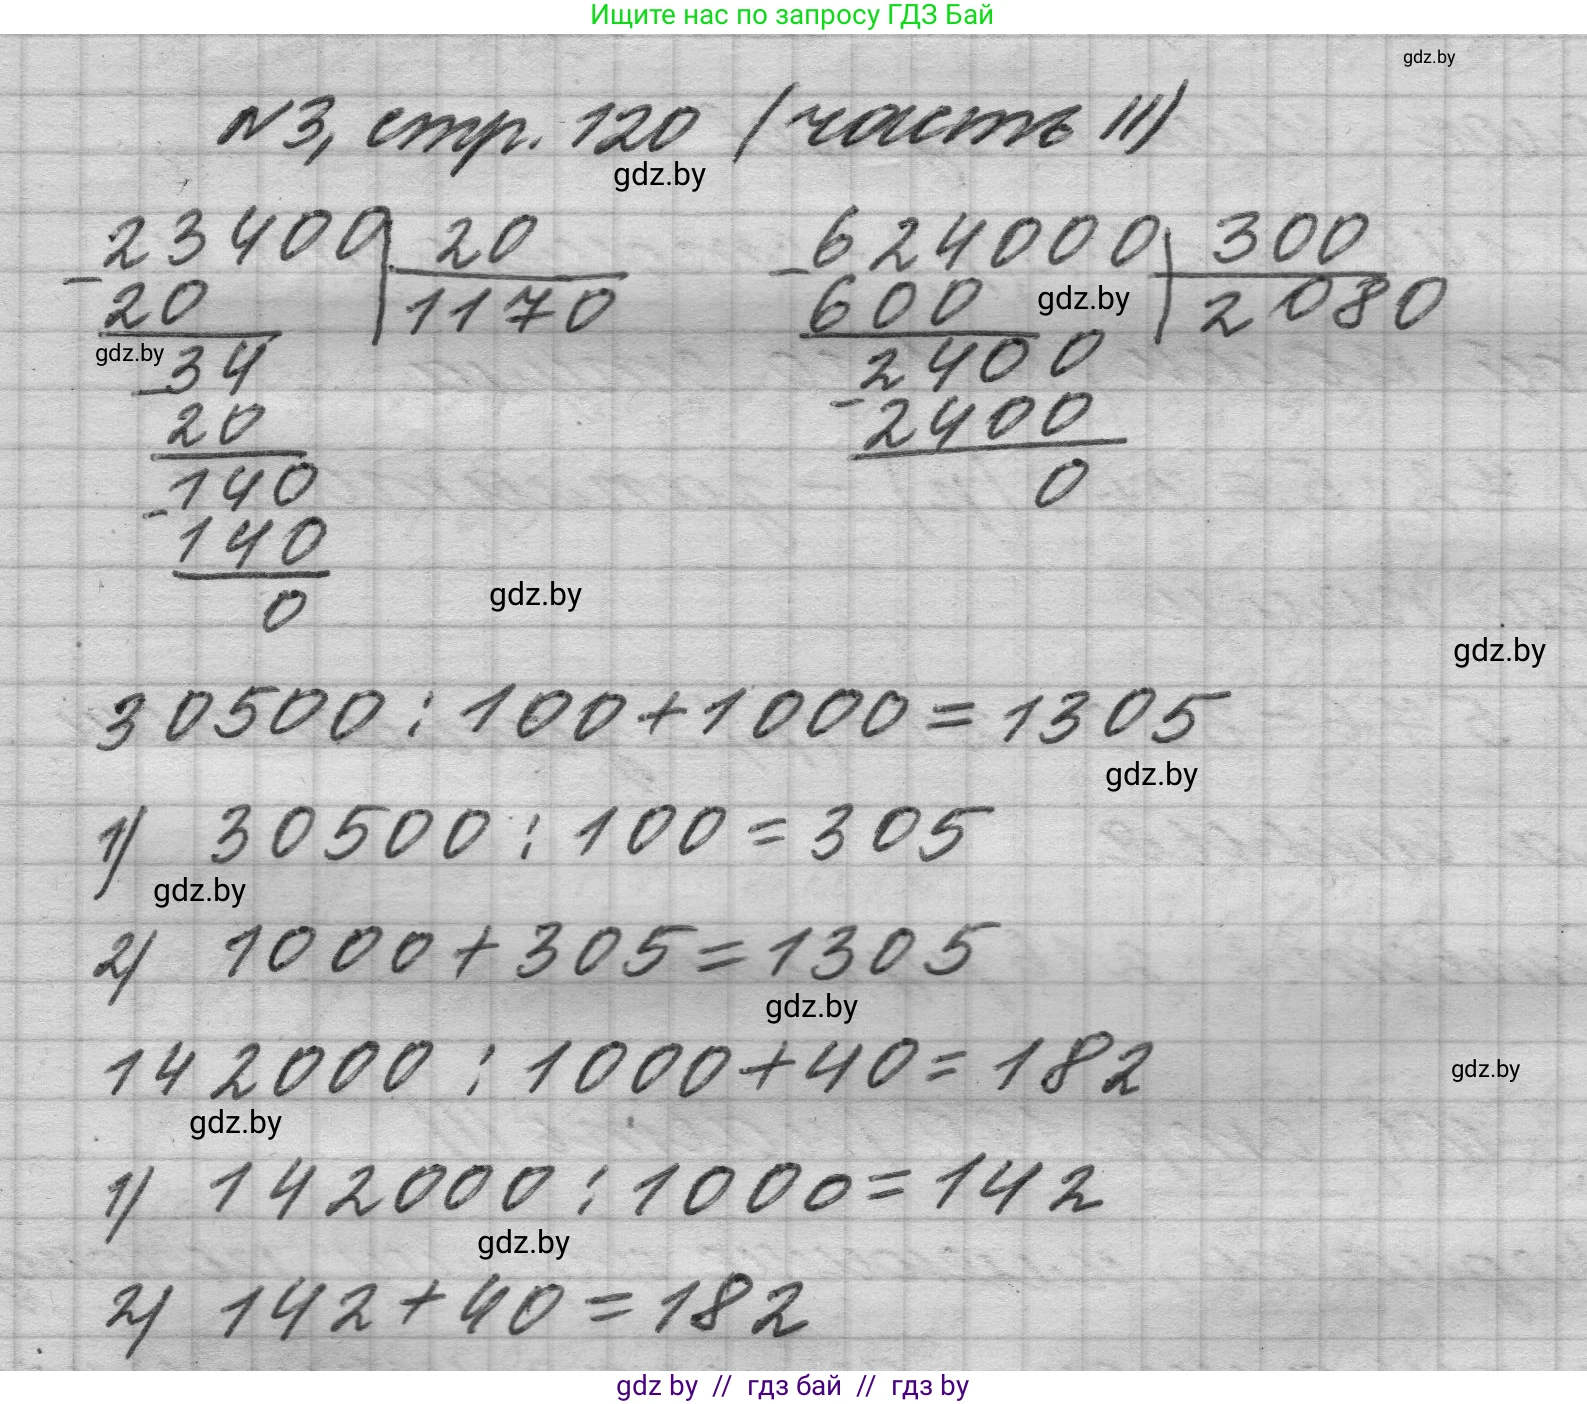 Ищите нас по запросу ГДЗ Бай
gdz.by
№3, стр. 120 (часть II)
gdz.by
23400 | 20
- 20 | 1170
gdz.by
34
- 20
140
- 140
0
624000 | 300
- 600 | 2080
gdz.by
2400
- 2400
0
gdz.by
gdz.by
30500 : 100 + 1000 = 1305
gdz.by
1) 30500 : 100 = 305
gdz.by
2) 1000 + 305 = 1305
gdz.by
142000 : 1000 + 40 = 182
gdz.by
gdz.by
1) 142000 : 1000 = 142
gdz.by
2) 142 + 40 = 182
gdz by // гдз бай // гдз by